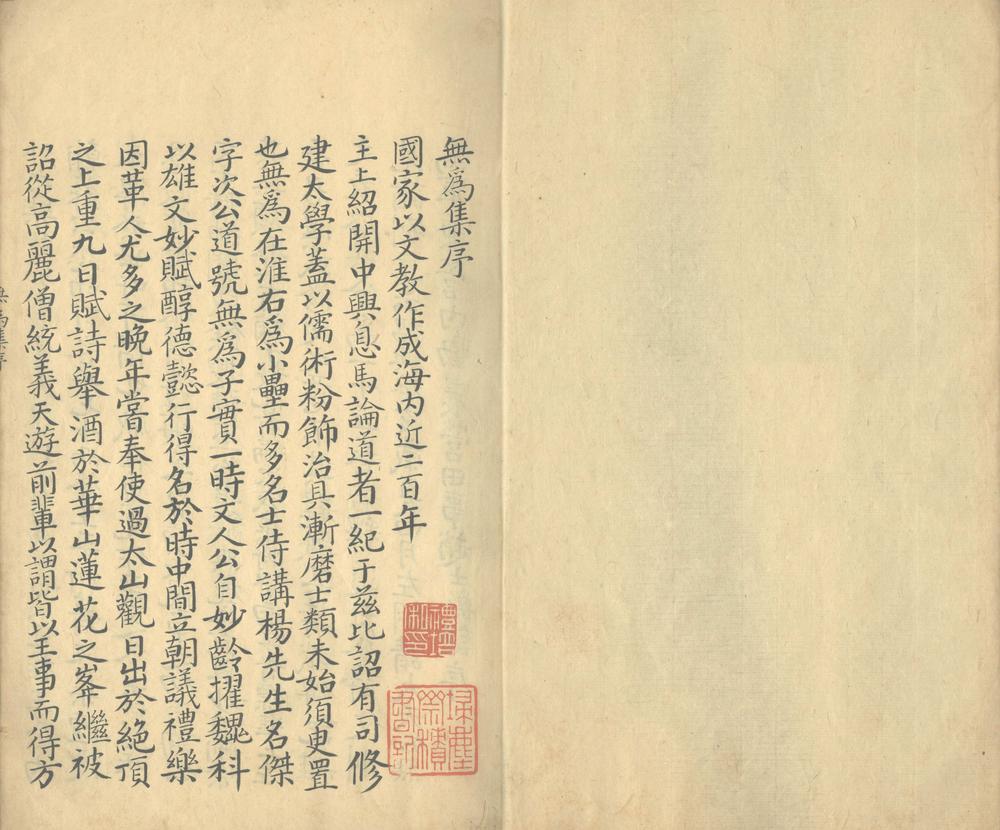 無爲集序
國家以文教作成海内近二百年
主上紹開中興息馬論道者一紀于茲比詔有司修
建太學蓋以儒術粉飾治具漸磨士類未始須更置
也無爲在淮右爲小壘而多名士侍講楊先生名傑
字次公道號無爲子實一時文人公自妙齡擢魏科
以雄文妙賦醇德懿行得名於時中間立朝議禮樂
因革人尤多之晚年嘗奉使過太山觀日出於絶頂
之上重九日賦詩舉酒於華山蓮花之峯繼被
詔從高麗僧統義天遊前輩以謂皆以王事而得方
無爲集序